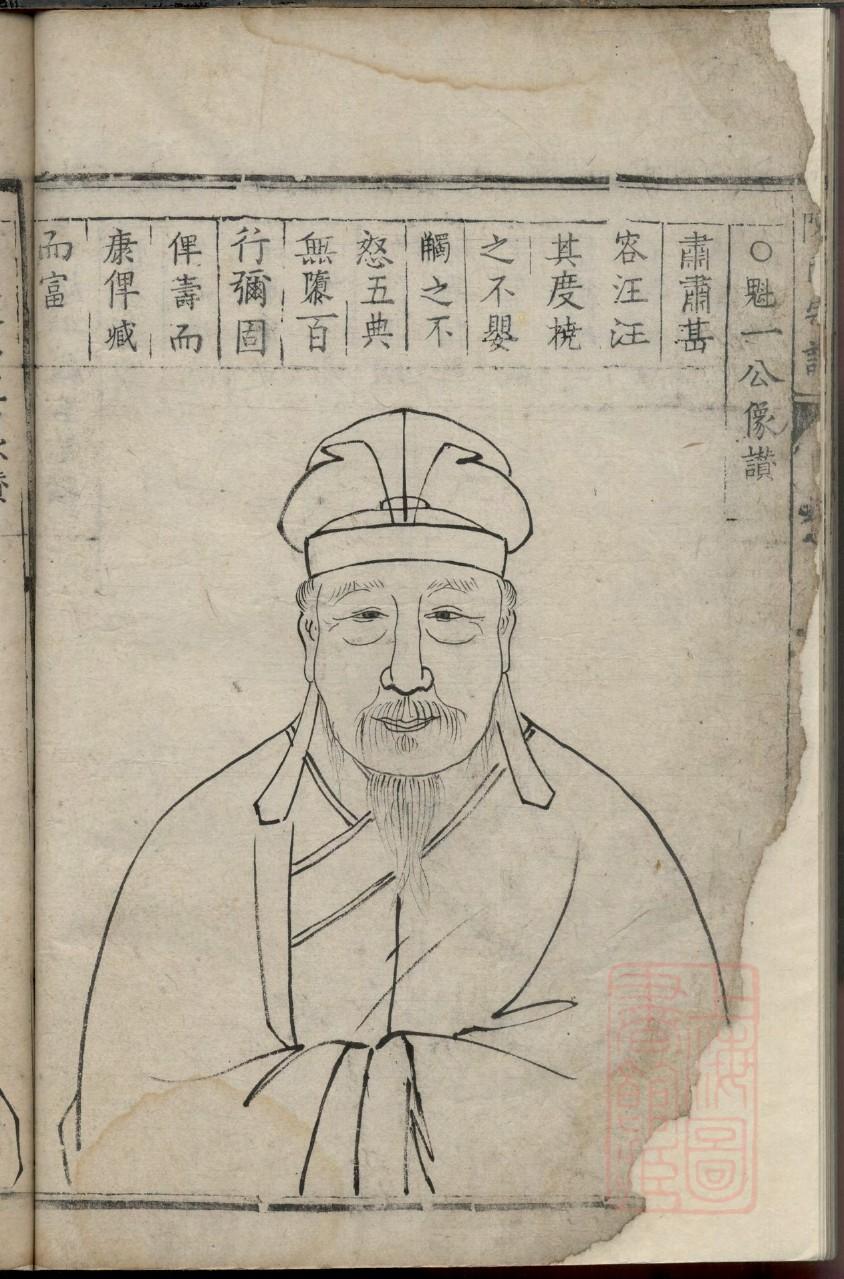 ○魁一公像讃
肅肅甚
容汪汪
其度撓
之不嬰
觸之不
怒五典
無隳百
行彌固
俾壽而
康俾臧
而富